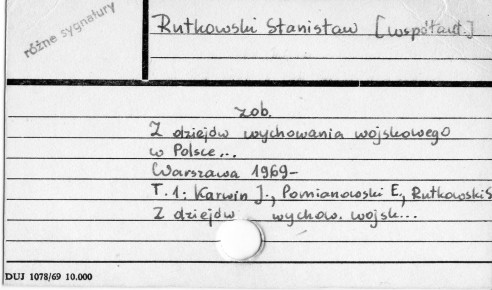 różne sygnatury
Rutkowski Stanisław [współaut.]
zob.
Z dziejów wychowania wojskowego
w Polsce...
Warszawa 1969-
T. 1: Karwin J., Pomianowski E., Rutkowski S.
Z dziejów wychow. wojsk...
DUJ 1078/69 10.000